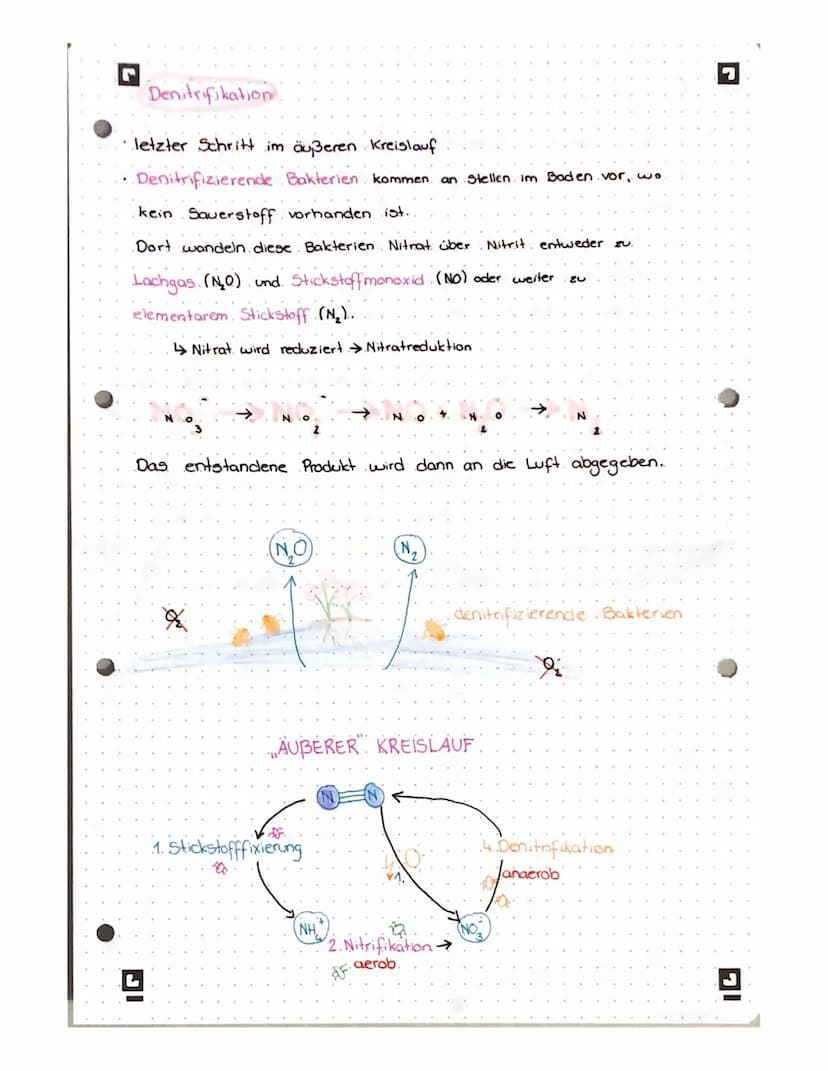 Denitrifikation
· letzter Schritt im äußeren Kreislauf
· Denitrifizierende Bakterien kommen an Stellen im Boden vor, wo
kein Sauerstoff vorhanden ist.
Dort wandeln diese Bakterien Nitrat über Nitrit entweder zu
Lachgas (N₂O) und Stickstoffmonoxid (NO) oder weiter zu
elementarem Stickstoff (N₂).
↳ Nitrat wird reduziert → Nitratreduktion
NO₃⁻ → NO₂⁻ → NO + N₂O → N₂
Das entstandene Produkt wird dann an die Luft abgegeben.
N₂O N₂
O₂ denitrifizierende Bakterien
O₂
„ÄUßERER" KREISLAUF
N≡N
1. Stickstofffixierung 4. Denitrifikation
1. anaerob
NH₄⁺ NO₃⁻
2. Nitrifikation →
aerob